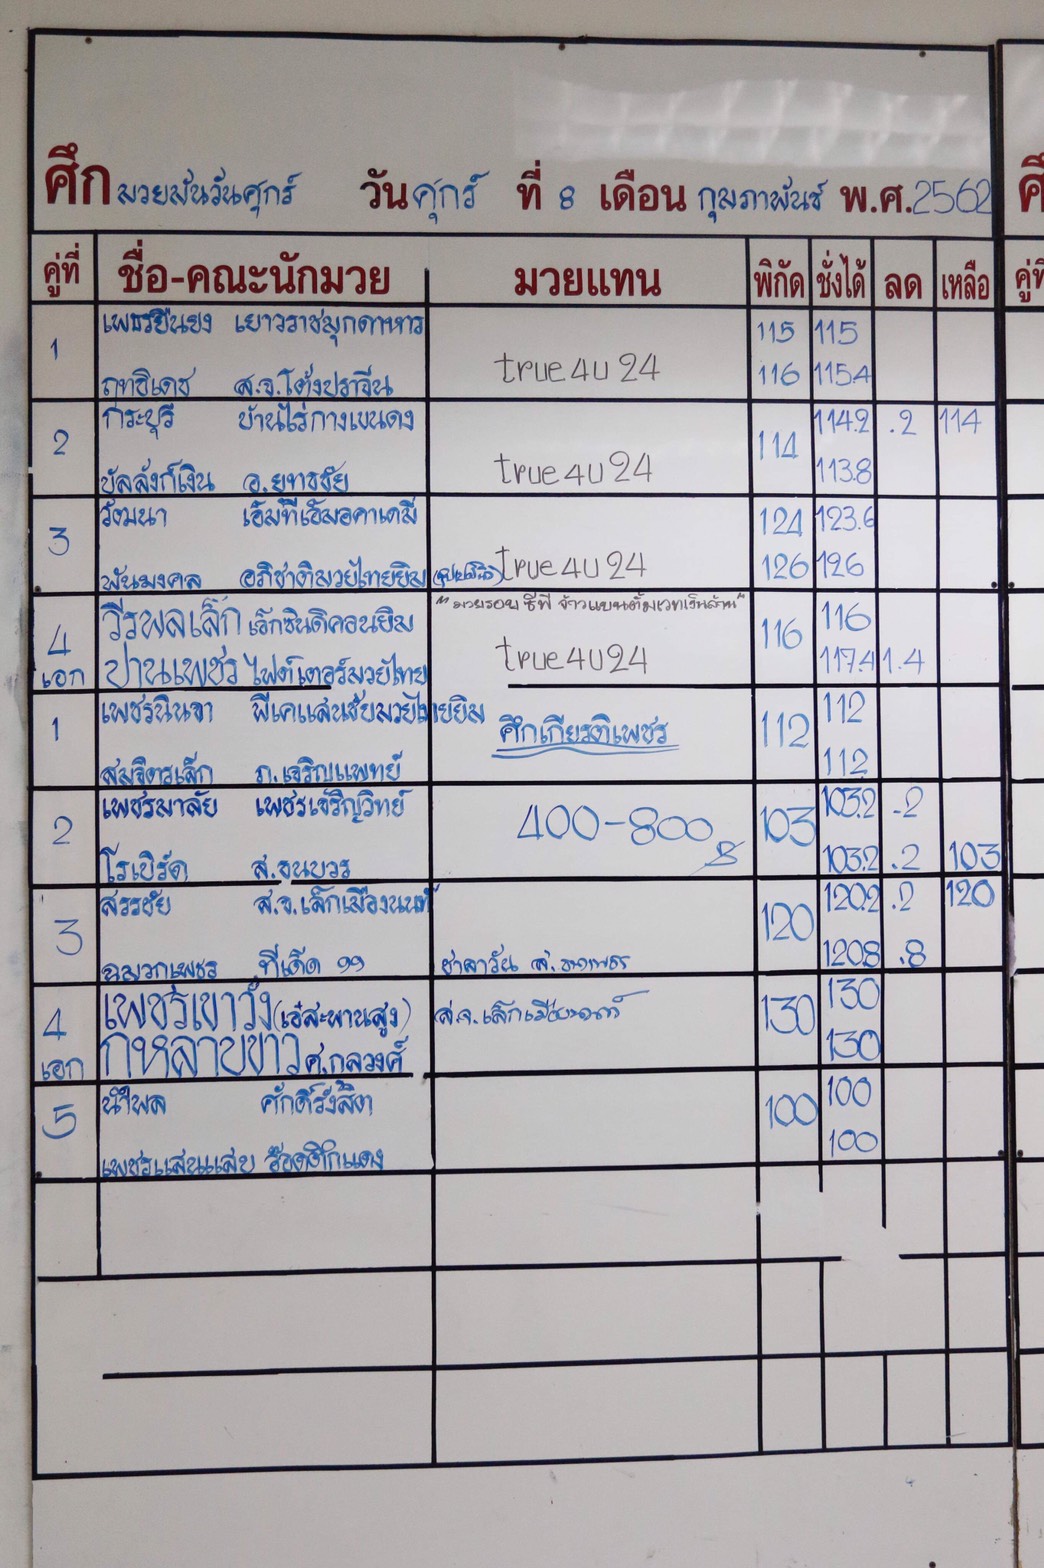 ศึก มวยมันวันศุกร์ วัน ศุกร์ ที่ 8 เดือน กุมภาพันธ์ พ.ศ. 2562
คู่ที่ ชื่อ-คณะนักมวย มวยแทน พิกัด ชั่งได้ ลด เหลือ
เพชรยืนยง เยาวราชมุกดาหาร 115 115
1 true4u 24
ฤทธิเดช ส.จ.โต้งปราจีน 116 115.4
กระบุรี บ้านไร่กางเขนดง 114.2 .2 114
2 true4u 24 114
บัลลังก์เงิน อ.ยุทธชัย 113.8
รัตนา เอ็มทีเอ็มอคาเดมี่ 124 123.6
3 true4u 24
พันมงคล อภิชาติมวยไทยยิม 126 126
วีรพลเล็ก เอ็กซินดิคอนยิม "มวยรอบ ซีพี จ้าวแบนตั้มเวทเงินล้าน" 116
4 เอก true4u 24 116
ปานเพชร ไฟต์เตอร์มวยไทย 117.4 1.4
เพชรนินจา พีเคแสนชัยมวยไทยยิม 112
1 ศึกเกียรติเพชร 112
สมจิตรเล็ก ภ.เจริญแพทย์ 112
เพชรมาลัย เพชรเจริญวิทย์ 103.2 .2
2 400-800 103
โรเบิร์ต ส.ธนบวร 103.2 .2 103
สรรชัย ส.จ.เล็กเมืองนนท์ 120.2 .2 120
3 120
ฉมวกเพชร ที่เด็ด 99 ชาลาวัน 120.8 .8
เพชรเขาวัง (เอ๋สะพานสูง) ส.จ.เล็กเมืองนนท์ 130
4 เอก 130
กุหลาบขาว ศ.กลวงศ์ 130
นำพล ศักดิ์รังสิต 100
5 100
เพชรแสนแสบ 100